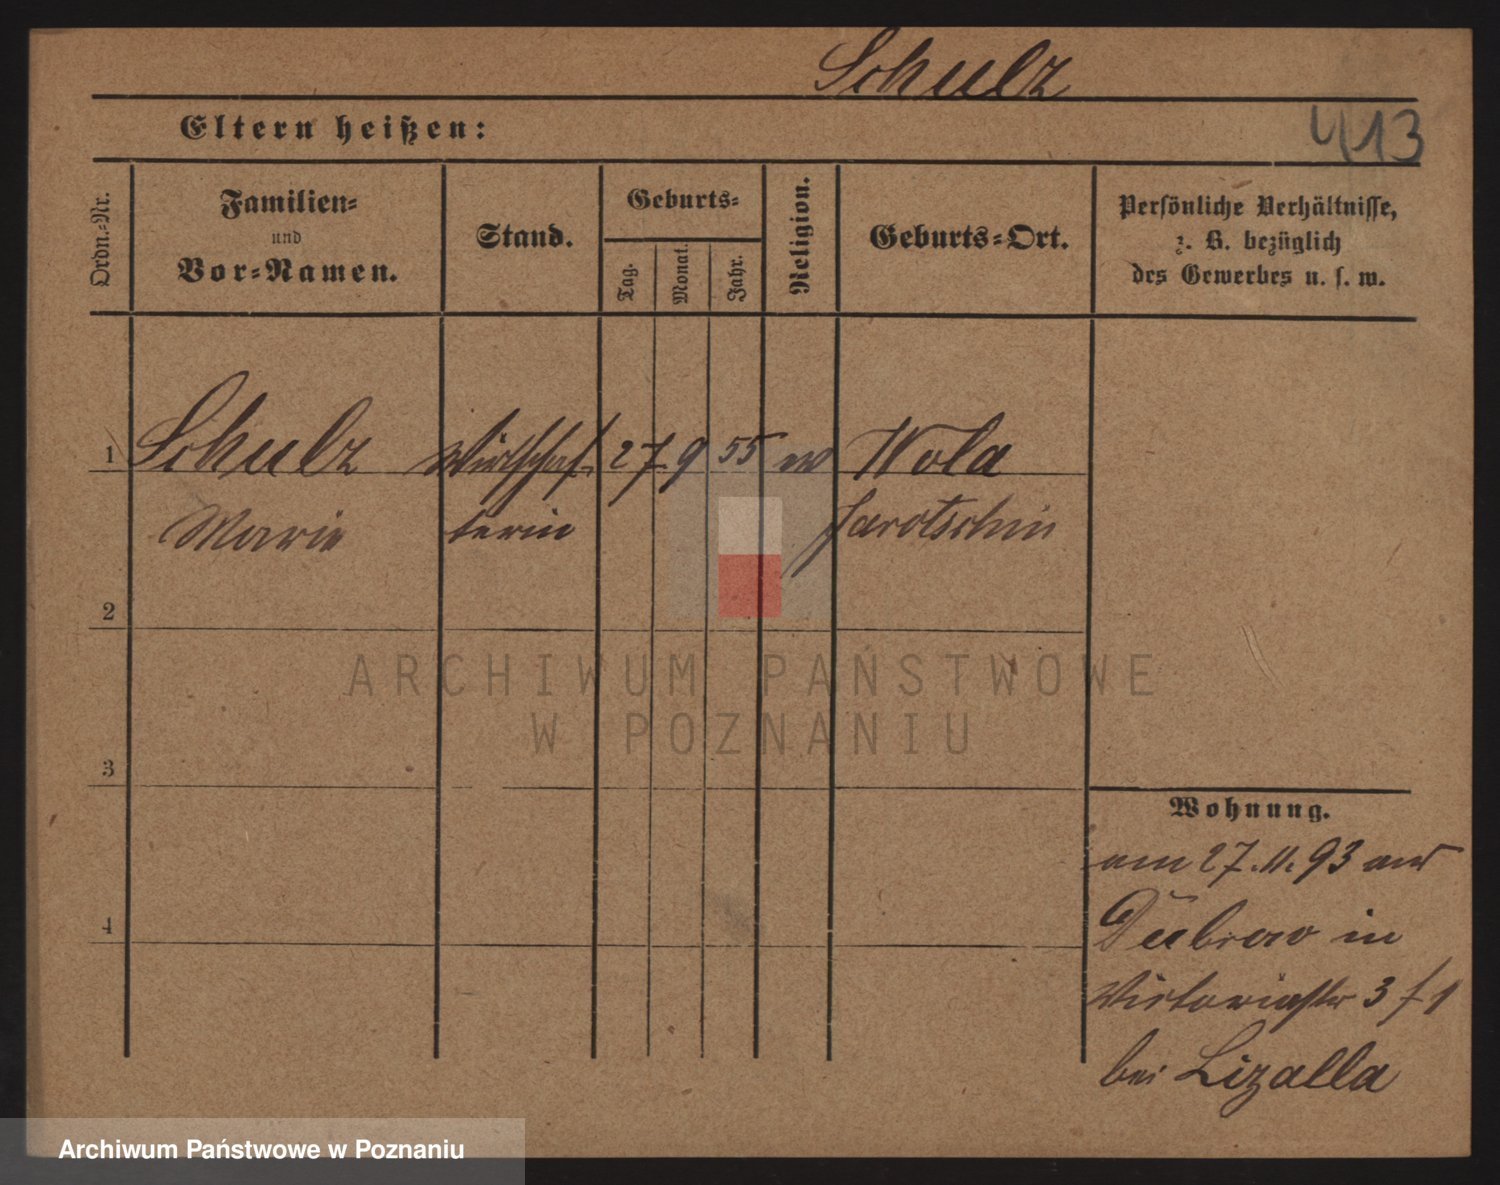 Schulz
413
Eltern heißen:
Ordn.-Nr.
Familien-
und
Vor-Namen.
Stand.
Geburts-
Tag.
Monat.
Jahr.
Religion.
Geburts-Ort.
Persönliche Verhältnisse,
z. B. bezüglich
des Gewerbes u. s. w.
1 Schulz Wirtschaf- 27 9 55 Wola
Marie terin Jarotschin
2
3
4
Wohnung.
am 27.11.93 aus
Dubrow in
Victoriastr 3
bei Lizalla
ARCHIWUM PAŃSTWOWE
W POZNANIU
Archiwum Państwowe w Poznaniu